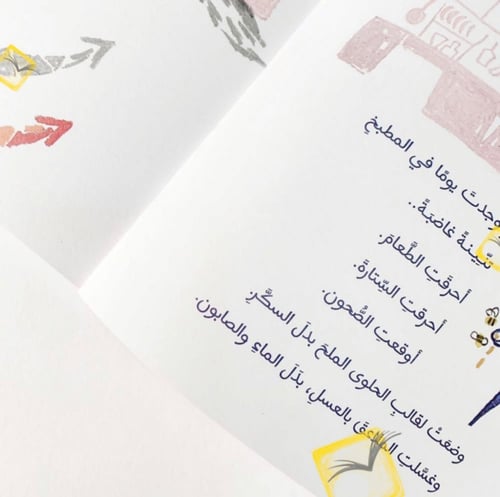 وجدتُ يومًا في المطبخِ
تنّينةً غاضبةً..
أحرقَتِ الطَّعامَ.
أحرقتِ السِّتارةَ.
أوقعتِ الصُّحون.
وضعَتْ لقالبِ الحلوى الملحَ بدَلَ السكَّرِ.
وغسَّلتِ الملاعقَ بالعسلِ، بدَلَ الماءِ والصابون.